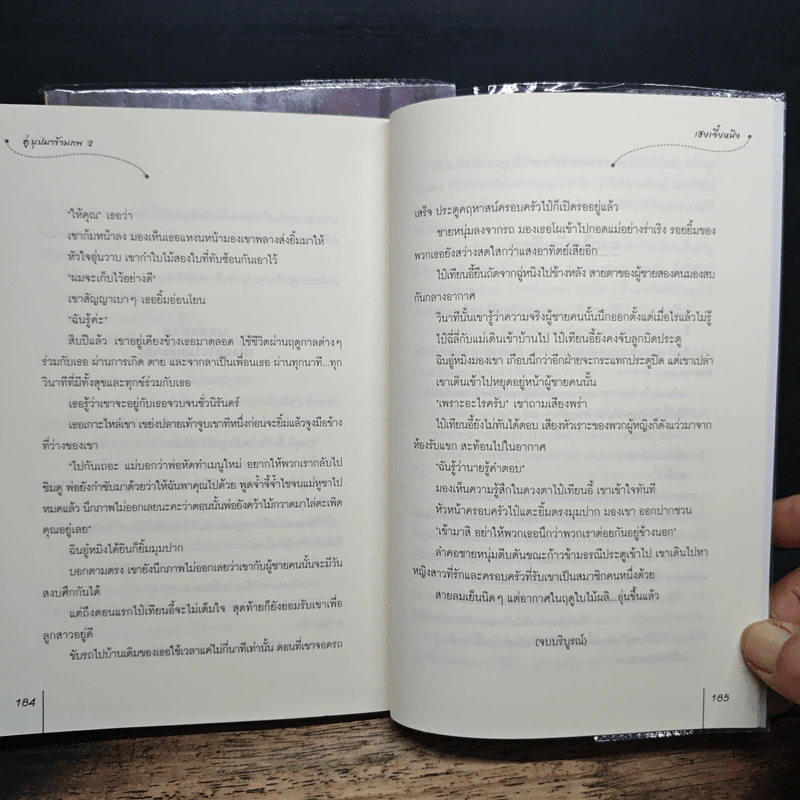 คู่บุปผาข้ามภพ 2
"ให้คุณ" เธอว่า
เขาก้มหน้าลง มองเห็นเธอแหงนหน้ามองเขาพลางส่งยิ้มมาให้
หัวใจอุ่นวาบ เขากำใบไม้สองใบที่ทับซ้อนกันเอาไว้
"ผมจะเก็บไว้อย่างดี"
เขาสัญญาเบาๆ เธอยิ้มอ่อนโยน
"ฉันรู้ค่ะ"
สิบปีแล้ว เขาอยู่เคียงข้างเธอมาตลอด ใช้ชีวิตผ่านฤดูกาลต่างๆ
ร่วมกับเธอ ผ่านการเกิด ตาย และจากลาเป็นเพื่อนเธอ ผ่านทุกนาที...ทุก
วินาทีที่มีทั้งสุขและทุกข์ร่วมกับเธอ
เธอรู้ว่าเขาจะอยู่กับเธอจวบจนชั่วนิรันดร์
เธอเกาะไหล่เขา เขย่งปลายเท้าจูบเขาทีหนึ่งก่อนจะยิ้มแล้วจูงมือข้าง
ที่ว่างของเขา
"ไปกันเถอะ แม่บอกว่าพ่อหัดทำเมนูใหม่ อยากให้พวกเรากลับไป
ชิมดู พ่อยังกำชับมาด้วยว่าให้ฉันพาคุณไปด้วย พูดจ้ำจี้จ้ำไชจนแม่หูชาไป
หมดแล้ว นึกภาพไม่ออกเลยนะคะว่าตอนนั้นพ่อยังคว้าไม้กวาดมาไล่ตะเพิด
คุณอยู่เลย"
ฉินอู๋หมิงได้ยินก็ยิ้มมุมปาก
บอกตามตรง เขายังนึกภาพไม่ออกเลยว่าเขากับผู้ชายคนนั้นจะมีวัน
สงบศึกกันได้
แต่ถึงตอนแรกไป๋เทียนอี้จะไม่เต็มใจ สุดท้ายก็ยังยอมรับเขาเพื่อ
ลูกสาวอยู่ดี
ขับรถไปบ้านเดิมของเธอใช้เวลาแค่ไม่กี่นาทีเท่านั้น ตอนที่เขาจอดรถ
184
เฮยเจี๋ยหมิง
เสร็จ ประตูคฤหาสน์ครอบครัวไป๋ก็เปิดรออยู่แล้ว
ชายหนุ่มลงจากรถ มองเธอโผเข้าไปกอดแม่อย่างร่าเริง รอยยิ้มของ
พวกเธอยังสว่างสดใสกว่าแสงอาทิตย์เสียอีก
ไป๋เทียนอี้ยืนถัดจากฉู่หนิงไปข้างหลัง สายตาของผู้ชายสองคนมองสบ
กันกลางอากาศ
วินาทีนั้นเขารู้ว่าความจริงผู้ชายคนนั้นนึกออกตั้งแต่เมื่อไรแล้วไม่รู้
ไป๋ฉีลี่กับแม่เดินเข้าบ้านไป ไป๋เทียนอี้ยังคงจับลูกบิดประตู
ฉินอู๋หมิงมองเขา เกือบนึกว่าอีกฝ่ายจะกระแทกประตูปิด แต่เขาเปล่า
เขาเดินเข้าไปหยุดอยู่หน้าผู้ชายคนนั้น
"เพราะอะไรครับ" เขาถามเสียงพร่า
ไป๋เทียนอี้ยังไม่ทันได้ตอบ เสียงหัวเราะของพวกผู้หญิงก็ดังแว่วมาจาก
ห้องรับแขก สะท้อนไปในอากาศ
"ฉันรู้ว่านายรู้คำตอบ"
มองเห็นความรู้สึกในดวงตาไป๋เทียนอี้ เขาเข้าใจทันที
หัวหน้าครอบครัวไป๋แตะยิ้มตรงมุมปาก มองเขา ออกปากชวน
"เข้ามาสิ อย่าให้พวกเธอนึกว่าพวกเราต่อยกันอยู่ข้างนอก"
ลำคอชายหนุ่มตีบตันขณะก้าวข้ามธรณีประตูเข้าไป เขาเดินไปหา
หญิงสาวที่รักและครอบครัวที่รับเขาเป็นสมาชิกคนหนึ่งด้วย
สายลมเย็นนิดๆ แต่อากาศในฤดูใบไม้ผลิ...อุ่นขึ้นแล้ว
(จบบริบูรณ์)
185